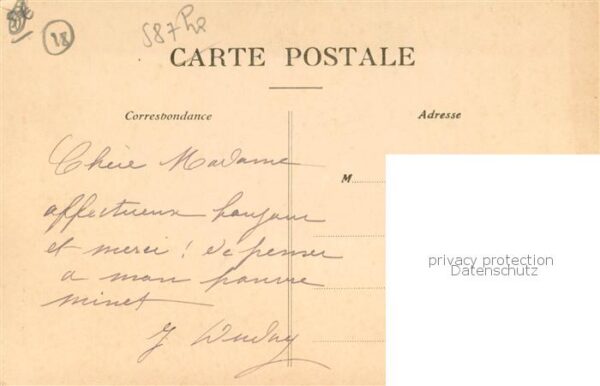 18
587
CARTE POSTALE
Correspondance
Adresse
Chère Madame
M
affectueux bonjour
et merci ! de penser
à mon pauvre
minet
privacy protection
Datenschutz
J